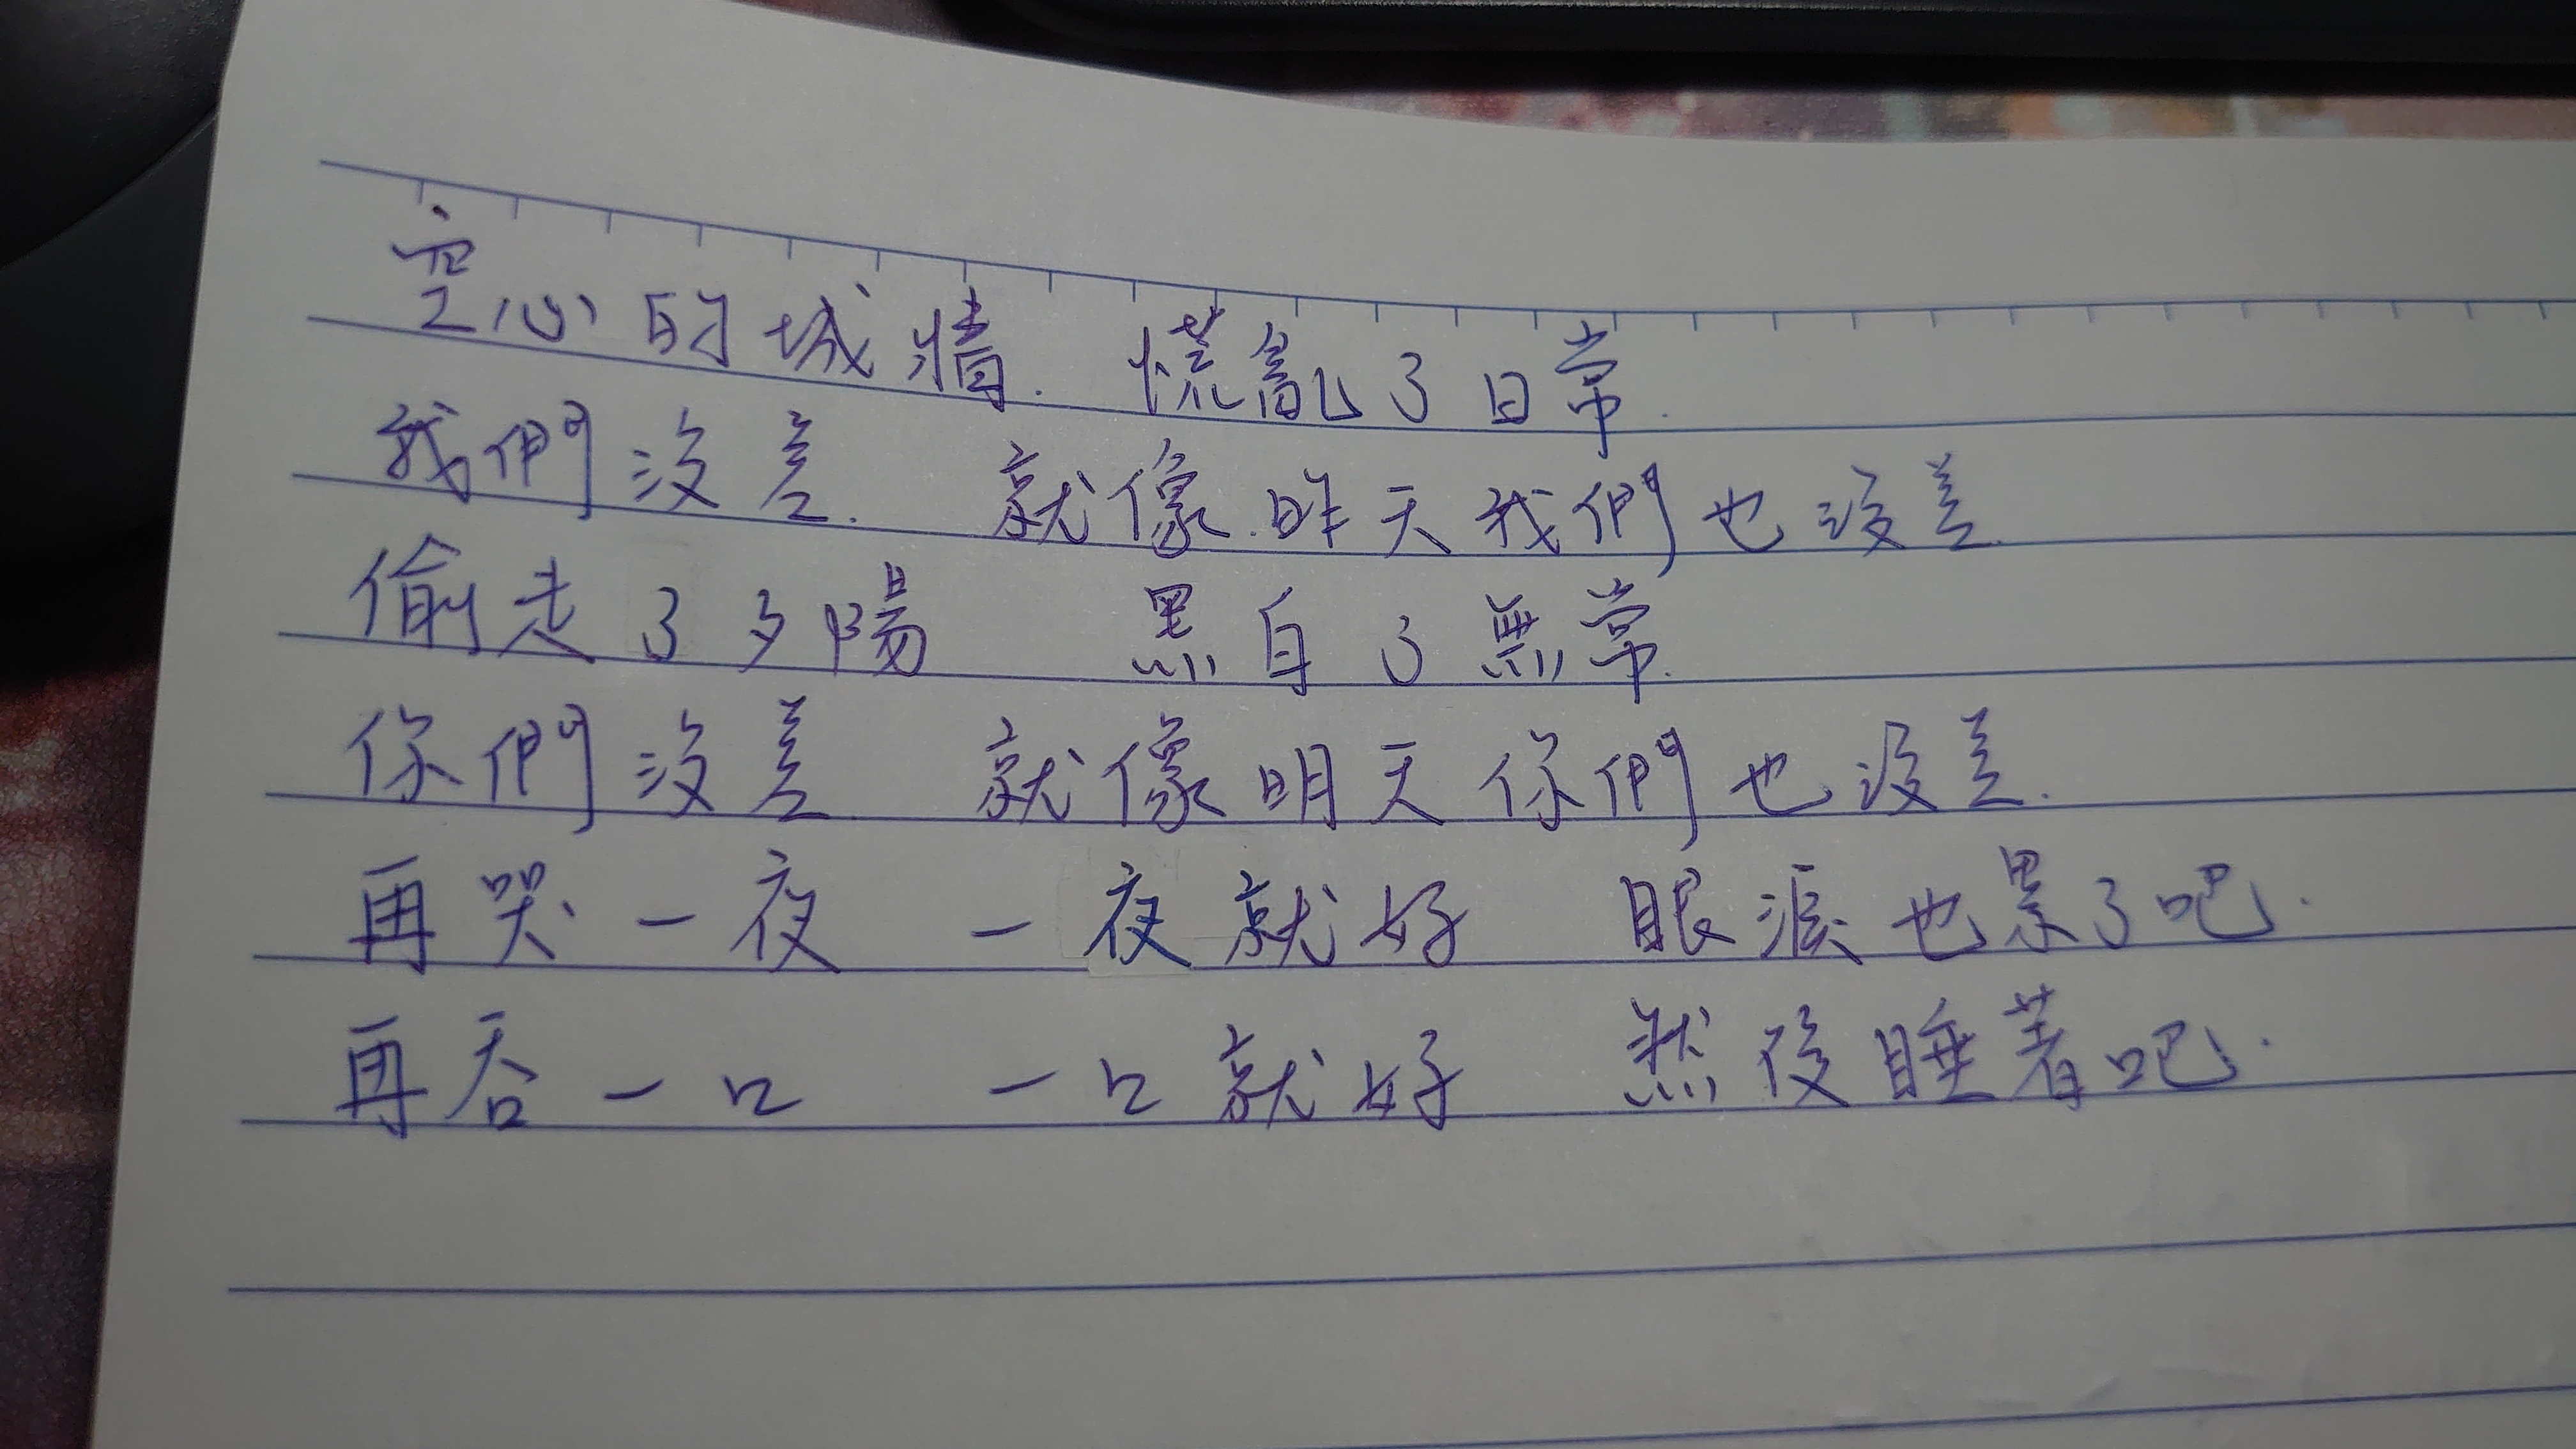 空心的城牆. 慌亂了日常.
我們沒差. 就像昨天我們也沒差.
偷走了夕陽 黑白了無常.
你們沒差. 就像明天你們也沒差.
再哭一夜 一夜就好 眼淚也累了吧.
再吞一口 一口就好 然後睡著吧.